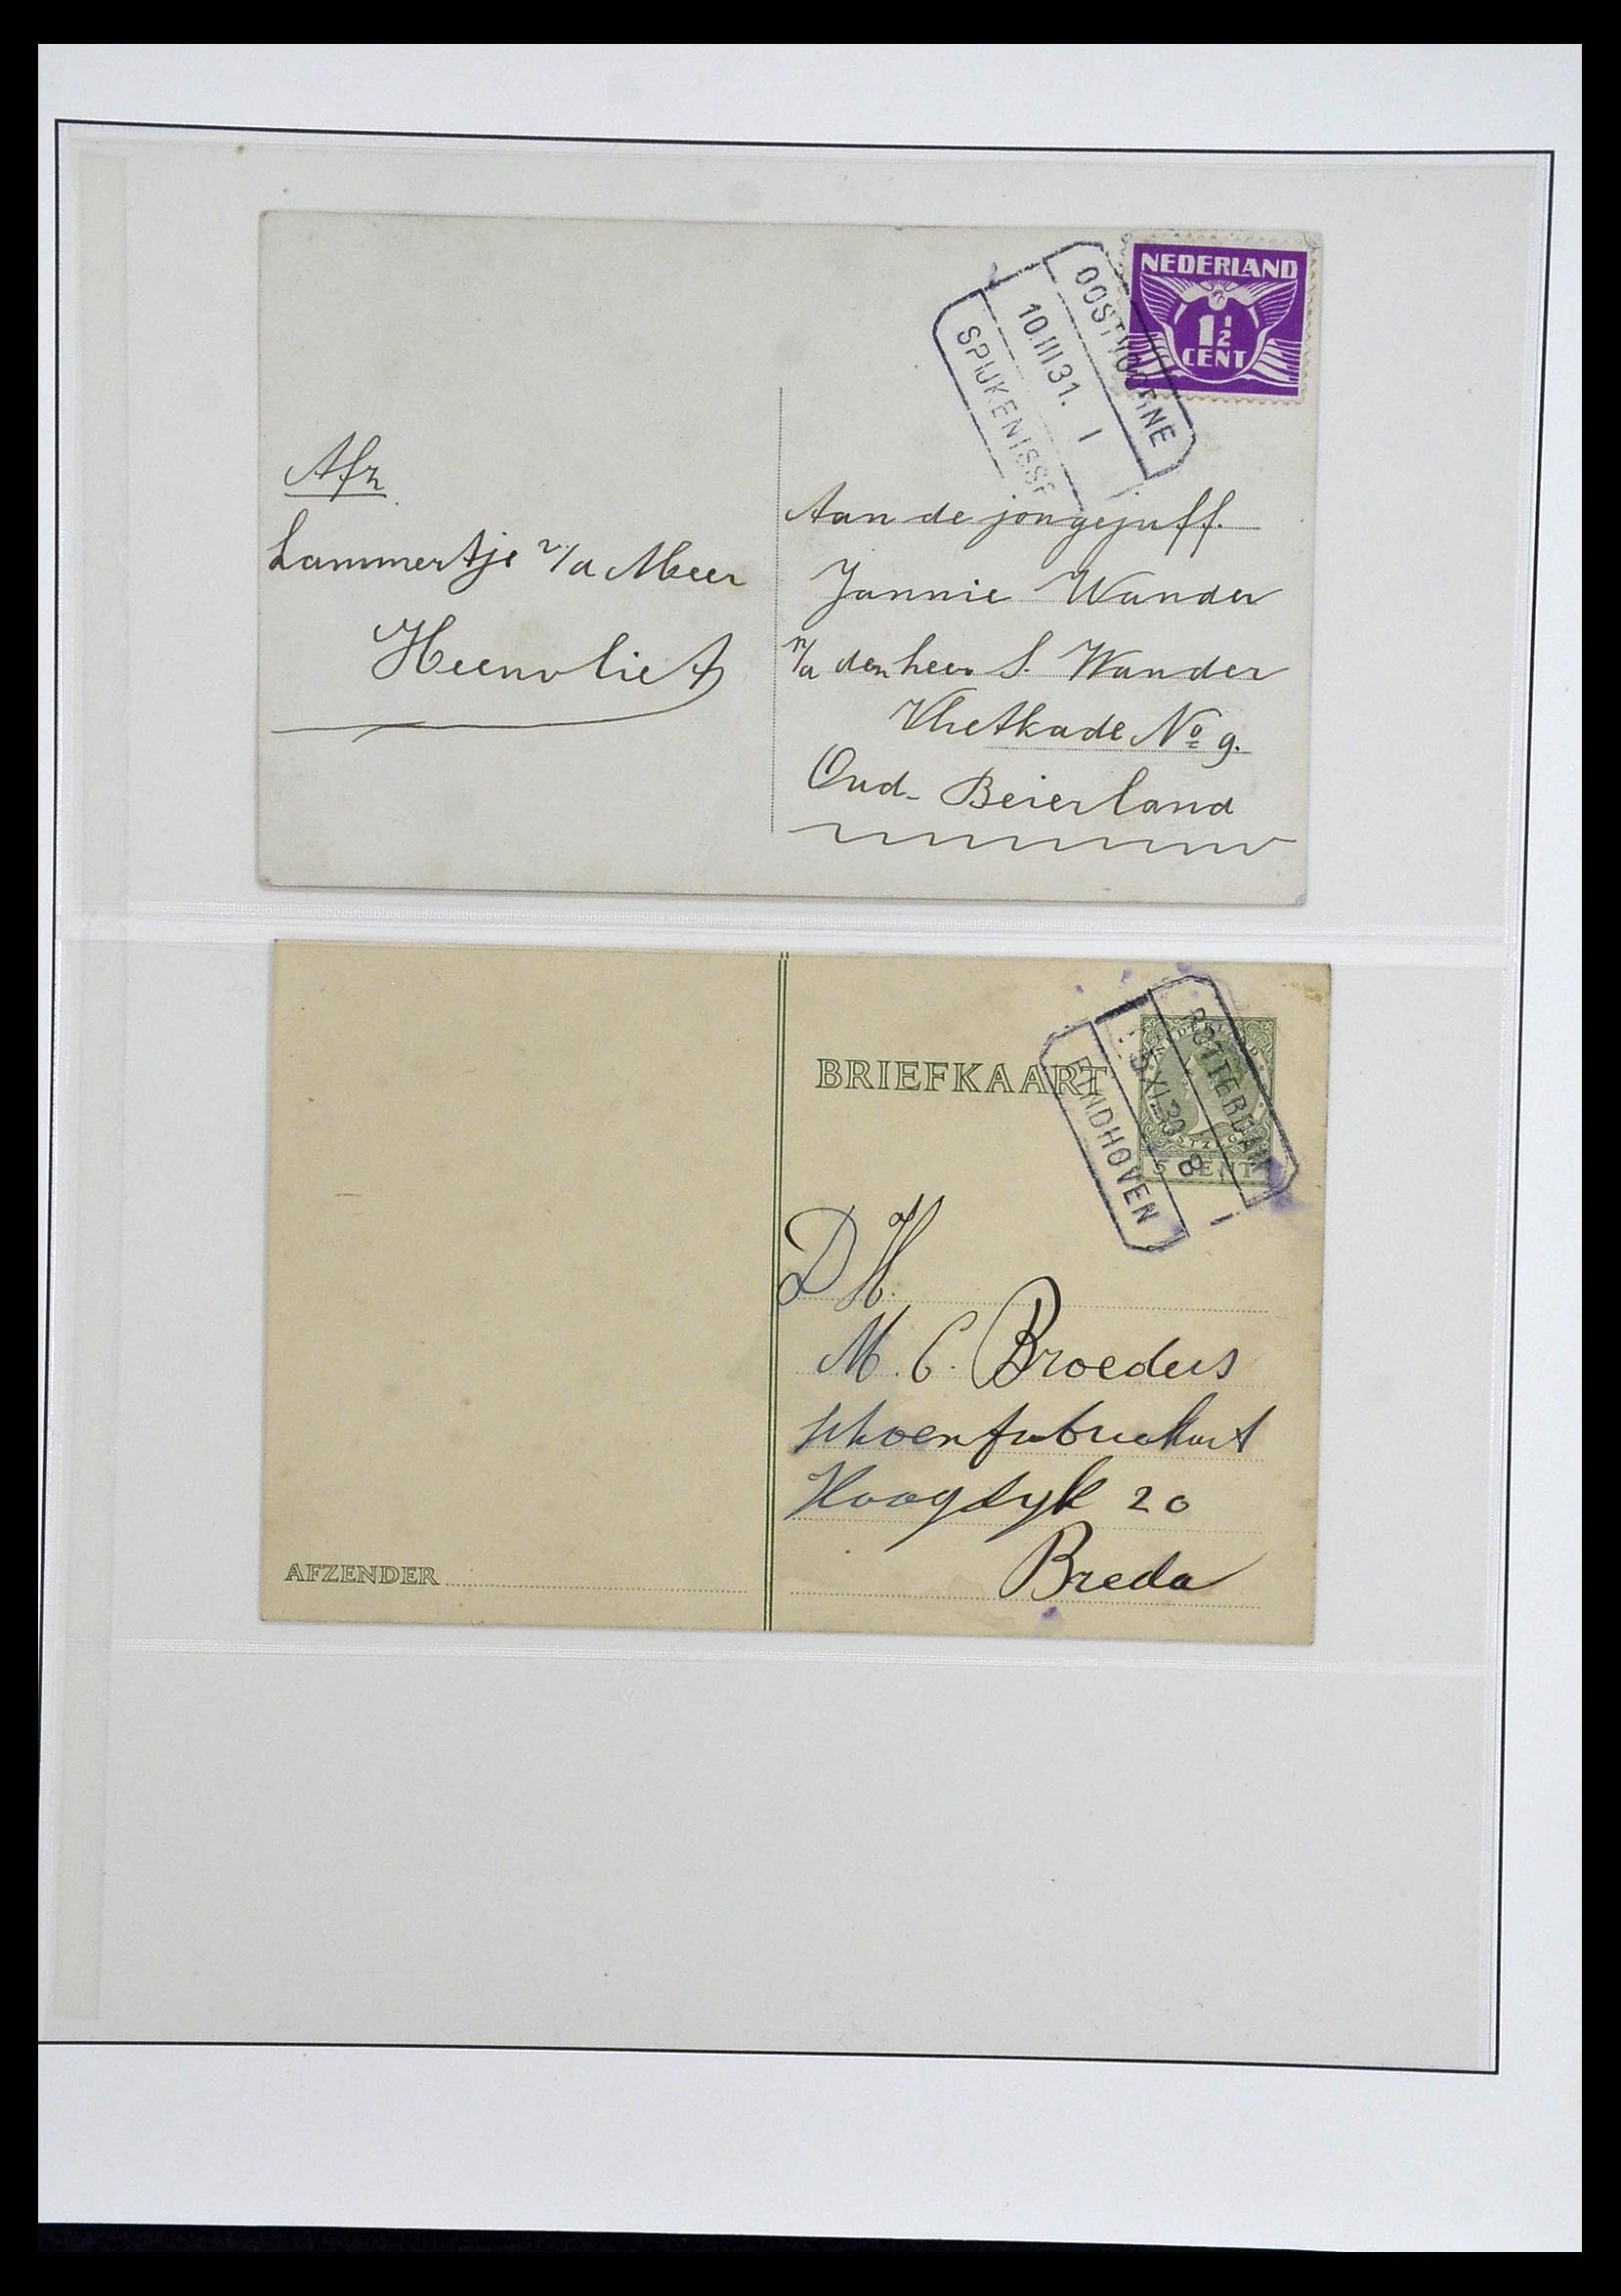 NEDERLAND
1½
CENT
OOSTVOORNE
10.III.31. I
SPIJKENISSE
Afz
Lammertje v/d Meer
Heenvliet
Aan de jongejuff.
Jannie Wander
p/a den heer S. Wander
Vlietkade No 9.
Oud-Beierland
BRIEFKAART
5 CENT
ROTTERDAM
XI 30 8 I
EINDHOVEN
D H.
M. C. Broeders
schoenfabrikant
Haagdyk 20
Breda
AFZENDER